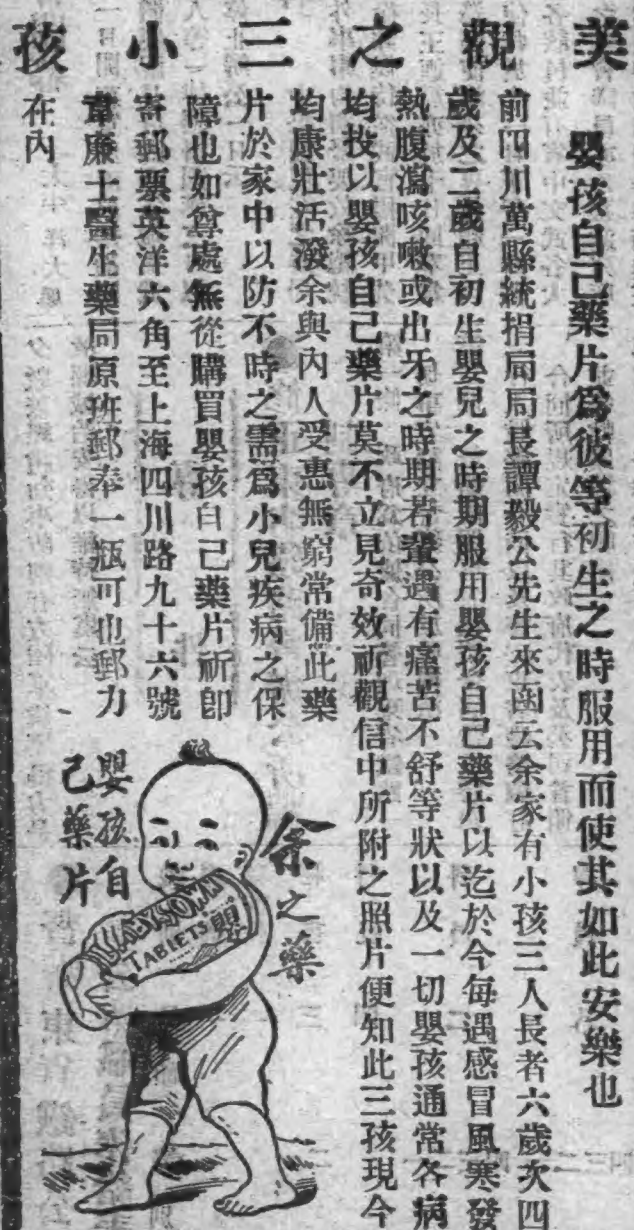 美觀之三小孩
嬰孩自己藥片爲彼等初生之時服用而使其如此安樂也
前四川萬縣統捐局局長譚毅公先生來函云余家有小孩三人長者六歲次四
歲及二歲自初生嬰兒之時期服用嬰孩自己藥片以迄於今每遇感冒風寒發
熱腹瀉咳嗽或出牙之時期若輩遇有痛苦不舒等狀以及一切嬰孩通常各病
均投以嬰孩自己藥片莫不立見奇效祈觀信中所附之照片便知此三孩現今
均康壯活潑余與內人受惠無窮常備此藥
片於家中以防不時之需爲小兒疾病之保
障也如尊處無從購買嬰孩自己藥片祈卽
寄郵票英洋六角至上海四川路九十六號
韋廉士醫生藥局原班郵奉一瓶可也郵力
在內
余之藥
BABYSOWN
TABLETS
嬰
嬰孩自
己藥片